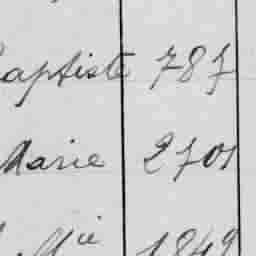 Baptiste 787
Marie 2701
Mie 1849